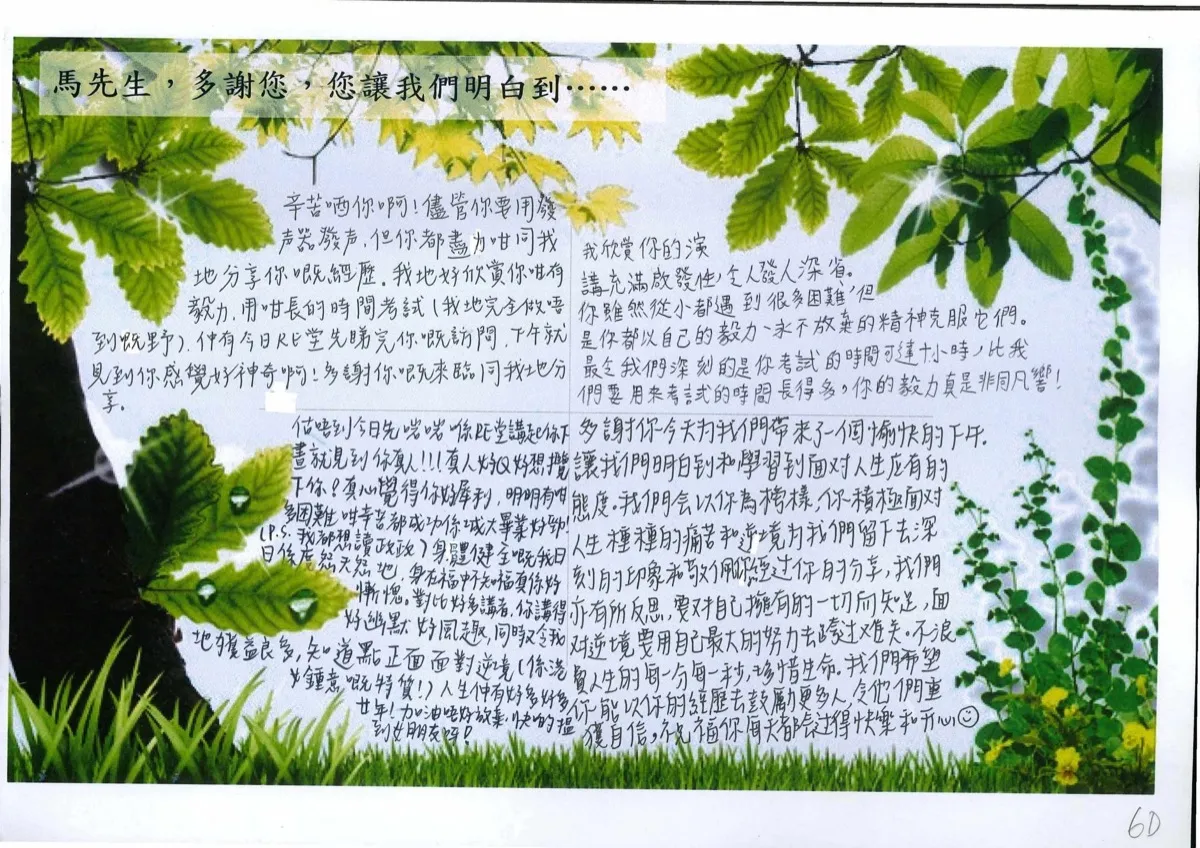 馬先生，多謝您，您讓我們明白到……
辛苦晒你啊！儘管你要用發
声器發声，但你都盡力咁同我
地分享你嘅經歷。我地好欣賞你咁有
毅力，用咁長的時間考試（我地完全做唔
到嘅野）。仲有今日RE堂先睇完你嘅訪問，下午就
見到你感覺好神奇啊！多謝你嘅來臨同我地分
享。
我欣賞你的演
講充滿啟發性，令人發人深省。
你雖然從小都遇到很多困難，但
是你都以自己的毅力、永不放棄的精神克服它們。
最令我們深刻的是你考試的時間可達十小時，比我
們要用來考試的時間長得多，你的毅力真是非同凡響！
估唔到今日先啱啱喺RE堂講起你下
晝就見到你真人！！！真人好Q好想攬
下你！真心覺得你好犀利，明明有咁
多困難咁辛苦都成功係城大畢業好勁！
(P.S. 我都想讀政政）身體健全嘅我日
日係度怨天怨地，身在福中不知福真係好
慚愧。對比好多講者，你講得
好幽默好風趣，同時又令我
地獲益良多，知道點正面面對逆境（係港
女鍾意嘅特質！）人生仲有好多好多
廿年！加油唔好放棄，快的搵
到女朋友呀！
多謝你今天为我們帶來了一個愉快的下午。
讓我們明白到和學習到面对人生应有的
態度。我們会以你為榜樣，你積極面对
人生種種的痛苦和逆境为我們留下去深
刻的印象和敬佩。經过你的分享，我們
亦有所反思，要对自己擁有的一切而知足，面
对逆境要用自己最大的努力去跨过难关。不浪
費人生的每一分每一秒，珍惜生命。我們希望
你能以你的經歷去鼓勵更多人，令他們重
獲自信，祝福你每天都会过得快樂和开心☺
6D